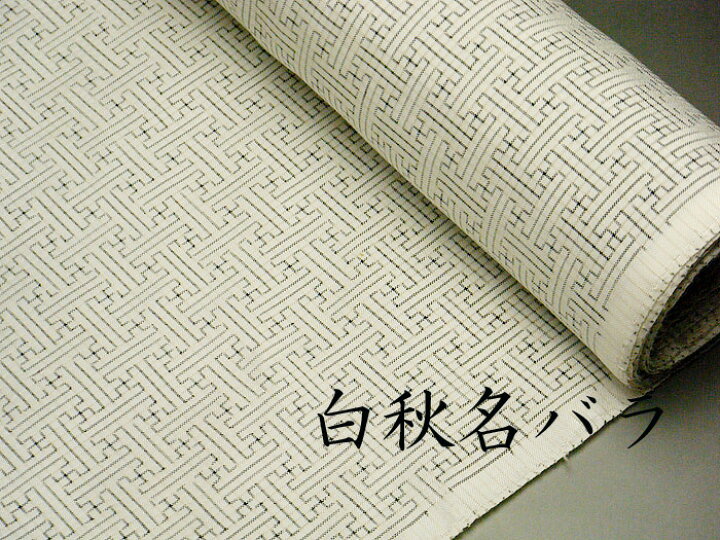 白秋名バラ